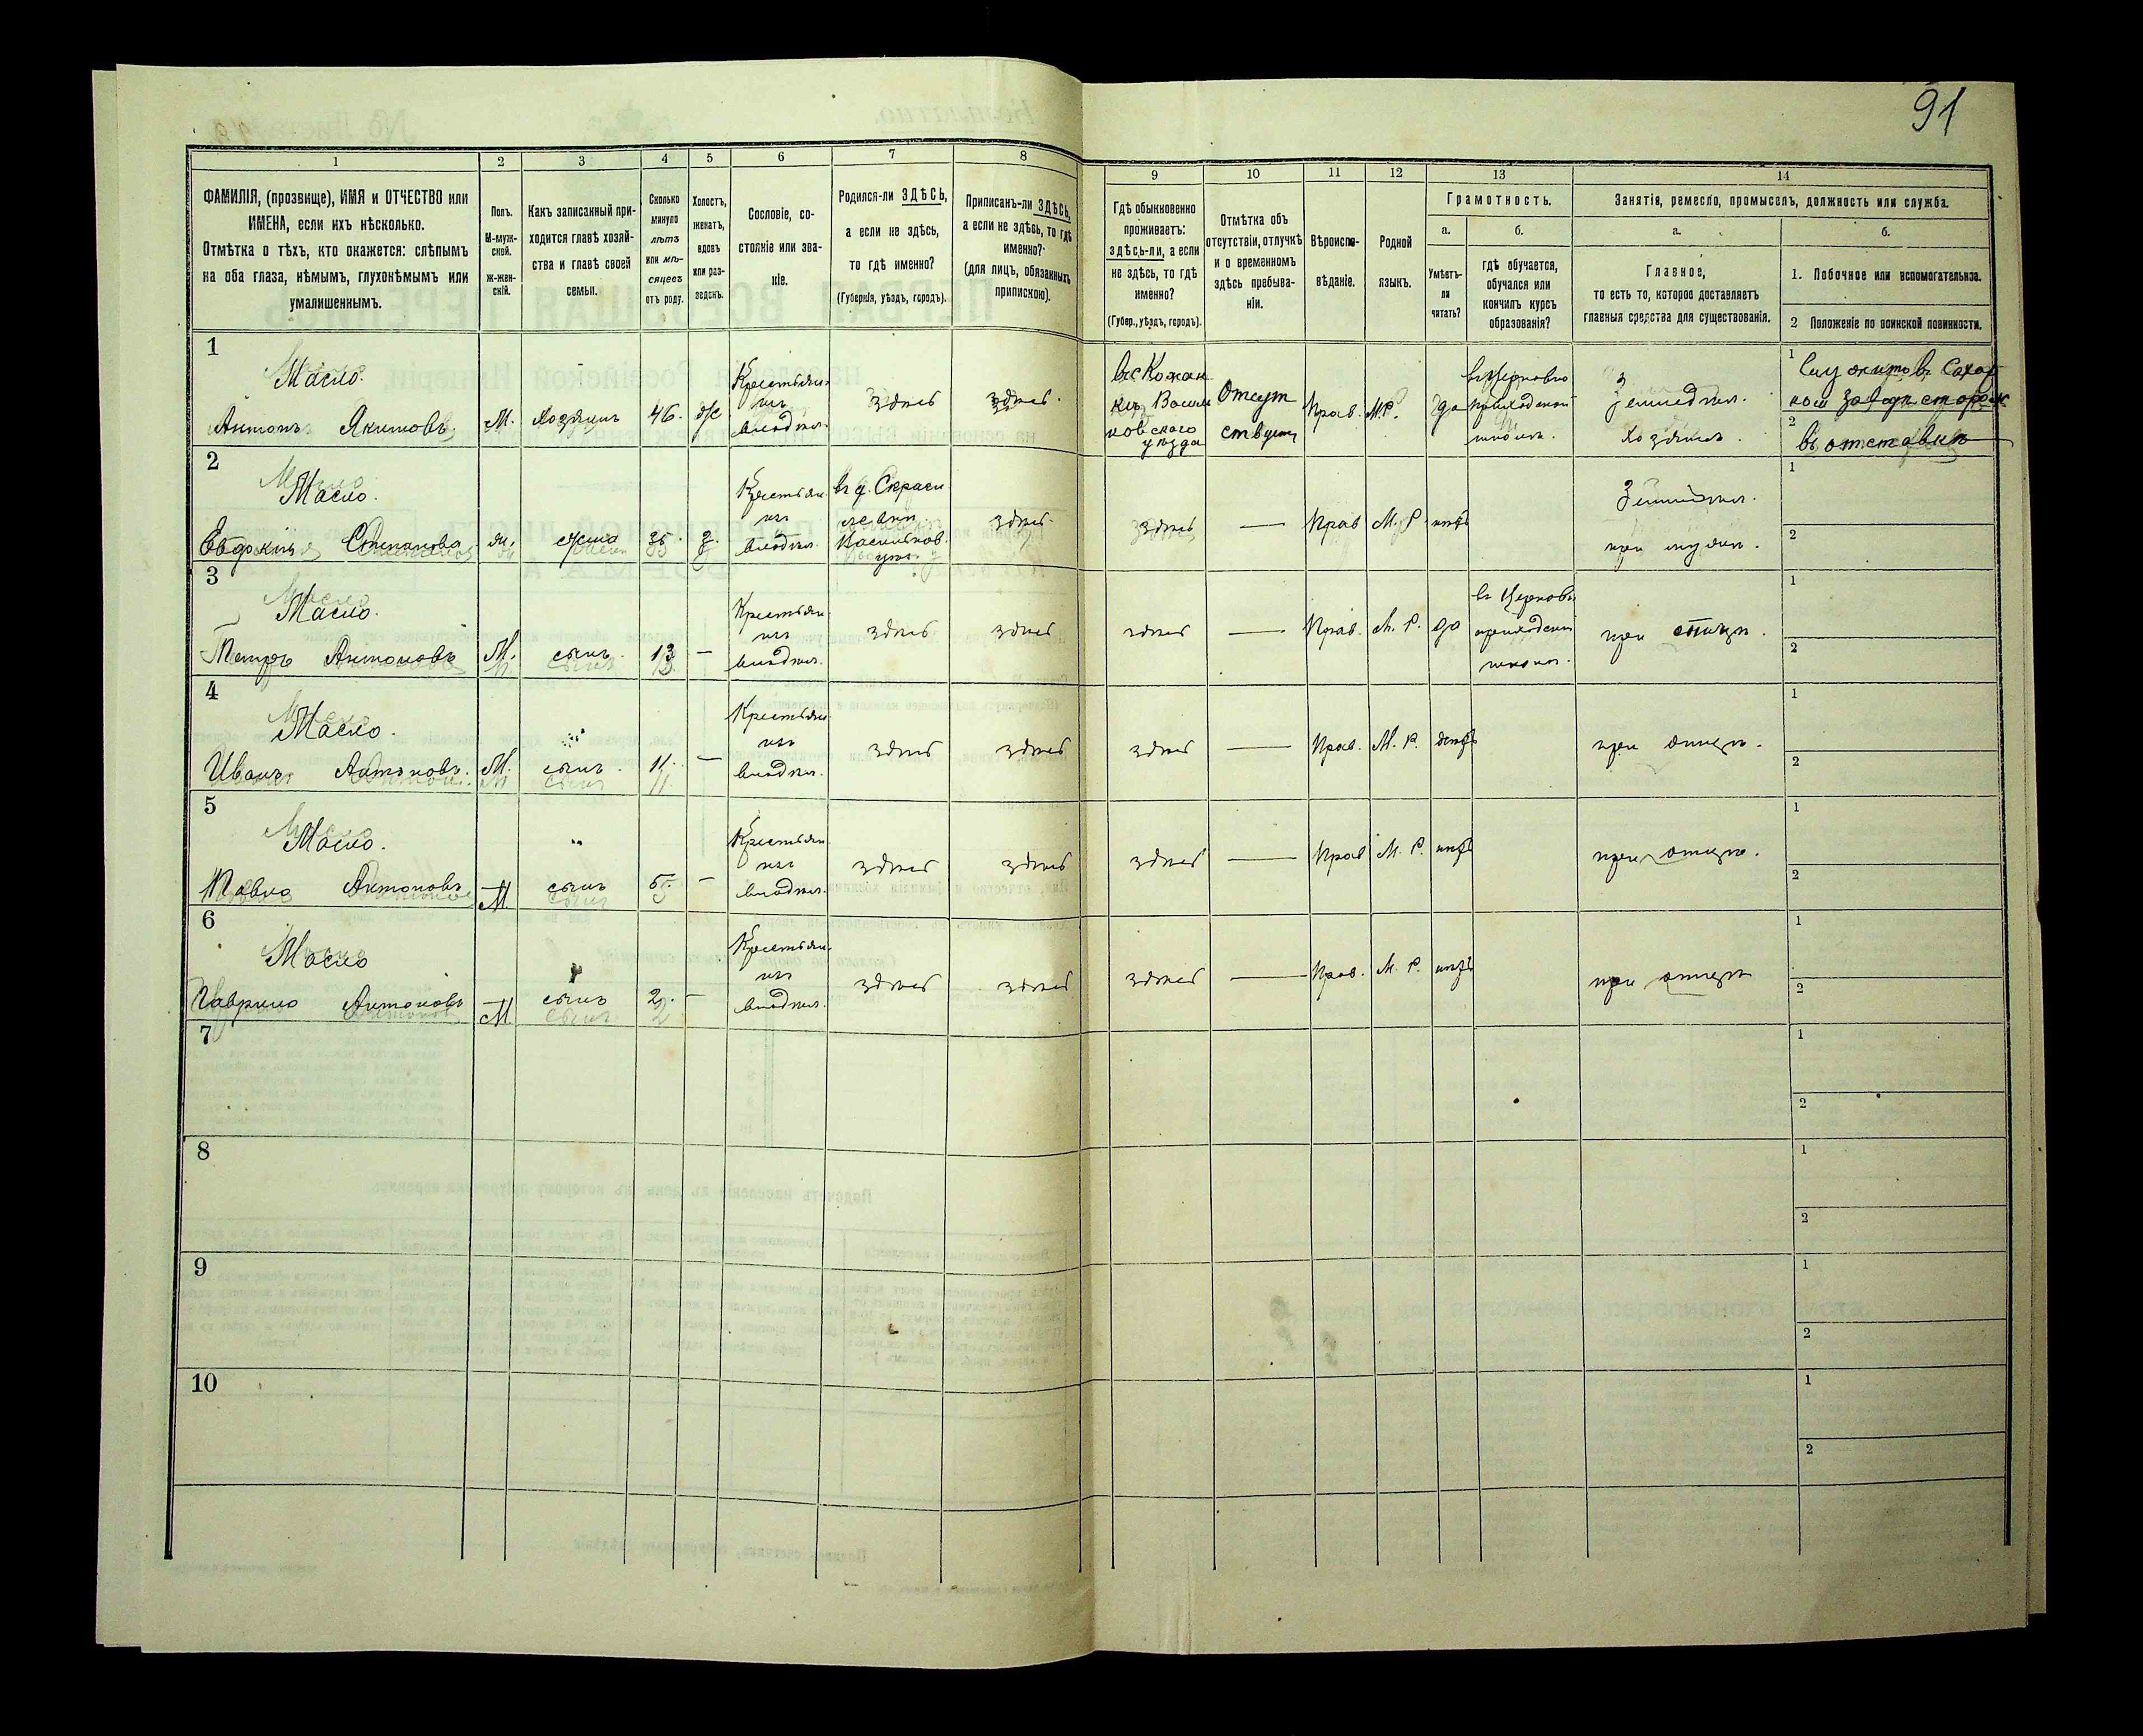 91
1
2
3
4
5
6
7
8
9
10
11
12
13
14
ФАМИЛІЯ, (прозвище), ИМЯ и ОТЧЕСТВО или
ИМЕНА, если ихъ нѣсколько.
Отмѣтка о тѣхъ, кто окажется: слѣпымъ
на оба глаза, нѣмымъ, глухонѣмымъ или
умалишеннымъ.
Полъ.
М-муж-
ской.
ж-жен-
скій.
Какъ записанный при-
ходится главѣ хозяй-
ства и главѣ своей
семьи.
Сколько
минуло
лѣтъ
или мѣ-
сяцевъ
отъ роду.
Холостъ,
женатъ,
вдовъ
или раз-
веденъ.
Сословіе, со-
стояніе или зва-
ніе.
Родился-ли ЗДѢСЬ,
а если не здѣсь,
то гдѣ именно?
(Губернія, уѣздъ, городъ).
Приписанъ-ли ЗДѢСЬ,
а если не здѣсь, то гдѣ
именно?
(для лицъ, обязанныхъ
припискою).
Гдѣ обыкновенно
проживаетъ:
здѣсь-ли, а если
не здѣсь, то гдѣ
именно?
(Губер., уѣздъ, городъ).
Отмѣтка объ
отсутствіи, отлучкѣ
и о временномъ
здѣсь пребыва-
ніи.
Вѣроиспо-
вѣданіе.
Родной
языкъ.
Грамотность.
а.
Умѣетъ-
ли
читать?
б.
гдѣ обучается,
обучался или
кончилъ курсъ
образованія?
Занятія, ремесло, промыселъ, должность или служба.
а.
Главное,
то есть то, которое доставляетъ
главныя средства для существованія.
б.
1. Побочное или вспомогательное.
2 Положеніе по воинской повинности.
1
Масло.
Антонъ Якимовъ
М.
Хозяинъ
46.
ж
Крестьян.
изъ
владѣл.
здѣсь
здѣсь.
въ с Кожан
кѣ Василь
ковского
уѣзда
Отсут
ствует
Прав.
М.Р.
да
въ Церковно
приходской
школѣ.
Земледѣл.
Хозяинъ.
1
Служитъ въ Сахар
ном заводѣ сторож
2
въ отставкѣ
2
Масло.
Евдокия Степанова
ж.
жена
35.
з.
Крестьян.
изъ
владѣл.
здѣсь.
здѣсь
—
Прав
М. Р.
нѣтъ
при мужѣ.
1
2
3
Масло.
Петръ Антоновъ
М.
сынъ.
13
—
Крестьян.
изъ
владѣл.
здѣсь
здѣсь
здѣсь
—
Прав.
М. Р.
да
въ Церковно
приходской
школѣ.
при отцѣ.
1
2
4
Масло.
Иванъ Антоновъ.
М.
сынъ.
11.
—
Крестьян.
изъ
владѣл.
здѣсь
здѣсь
здѣсь
—
Прав.
М. Р.
нѣтъ
при отцѣ.
1
2
5
Масло.
Павло Антоновъ
М
сынъ
5.
—
Крестьян.
изъ
владѣл.
здѣсь
здѣсь
здѣсь
—
Прав
М. Р.
нѣтъ
при отцѣ.
1
2
6
Масло
Гаврило Антоновъ
М
сынъ
2.
—
Крестьян.
изъ
владѣл.
здѣсь
здѣсь
здѣсь
—
Прав.
М. Р.
нѣтъ
при отцѣ
1
2
7
1
2
8
1
2
9
1
2
10
1
2